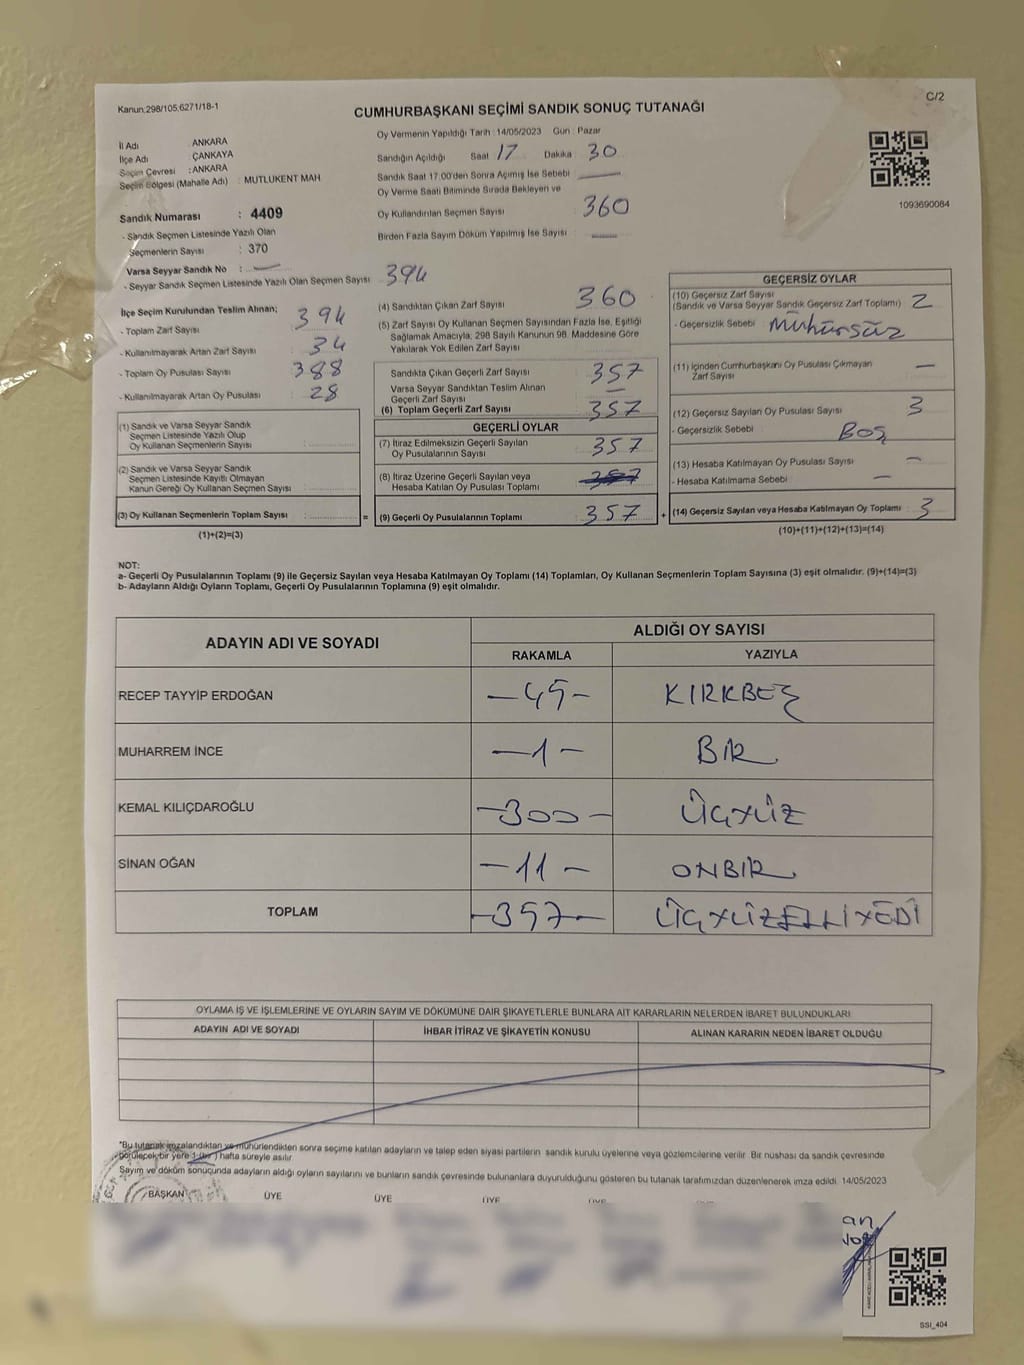 Kanun:298/105;6271/18-1
C/2
CUMHURBAŞKANI SEÇİMİ SANDIK SONUÇ TUTANAĞI
İl Adı : ANKARA
İlçe Adı : ÇANKAYA
Seçim Çevresi : ANKARA
Seçim Bölgesi (Mahalle Adı) : MUTLUKENT MAH
Sandık Numarası : 4409
- Sandık Seçmen Listesinde Yazılı Olan
Seçmenlerin Sayısı : 370
Varsa Seyyar Sandık No : —
- Seyyar Sandık Seçmen Listesinde Yazılı Olan Seçmen Sayısı 394
Oy Vermenin Yapıldığı Tarih : 14/05/2023 Gün : Pazar
Sandığın Açıldığı Saat 17 Dakika 30
Sandık Saat 17.00'den Sonra Açımış İse Sebebi —
Oy Verme Saati Bitiminde Sırada Bekleyen ve
Oy Kullandırılan Seçmen Sayısı 360
Birden Fazla Sayım Döküm Yapılmış İse Sayısı —
1093690084
İlçe Seçim Kurulundan Teslim Alınan;
- Toplam Zarf Sayısı 394
- Kullanılmayarak Artan Zarf Sayısı 34
- Toplam Oy Pusulası Sayısı 388
- Kullanılmayarak Artan Oy Pusulası 28
(1) Sandık ve Varsa Seyyar Sandık
Seçmen Listesinde Yazılı Olup
Oy Kullanan Seçmenlerin Sayısı :
(2) Sandık ve Varsa Seyyar Sandık
Seçmen Listesinde Kayıtlı Olmayan
Kanun Gereği Oy Kullanan Seçmen Sayısı :
(3) Oy Kullanan Seçmenlerin Toplam Sayısı :
(1)+(2)=(3)
=
(4) Sandıktan Çıkan Zarf Sayısı 360
(5) Zarf Sayısı Oy Kullanan Seçmen Sayısından Fazla İse, Eşitliği
Sağlamak Amacıyla; 298 Sayılı Kanunun 98. Maddesine Göre
Yakılarak Yok Edilen Zarf Sayısı
Sandıkta Çıkan Geçerli Zarf Sayısı 357
Varsa Seyyar Sandıktan Teslim Alınan
Geçerli Zarf Sayısı —
(6) Toplam Geçerli Zarf Sayısı 357
GEÇERLİ OYLAR
(7) İtiraz Edilmeksizin Geçerli Sayılan
Oy Pusulalarının Sayısı 357
(8) İtiraz Üzerine Geçerli Sayılan veya
Hesaba Katılan Oy Pusulası Toplamı
(9) Geçerli Oy Pusulalarının Toplamı 357
+
GEÇERSİZ OYLAR
(10) Geçersiz Zarf Sayısı
(Sandık ve Varsa Seyyar Sandık Geçersiz Zarf Toplamı) 2
- Geçersizlik Sebebi Mühürsüz
(11) İçinden Cumhurbaşkanı Oy Pusulası Çıkmayan
Zarf Sayısı —
(12) Geçersiz Sayılan Oy Pusulası Sayısı 3
- Geçersizlik Sebebi BOŞ
(13) Hesaba Katılmayan Oy Pusulası Sayısı —
- Hesaba Katılmama Sebebi —
(14) Geçersiz Sayılan veya Hesaba Katılmayan Oy Toplamı 3
(10)+(11)+(12)+(13)=(14)
NOT:
a- Geçerli Oy Pusulalarının Toplamı (9) ile Geçersiz Sayılan veya Hesaba Katılmayan Oy Toplamı (14) Toplamları, Oy Kullanan Seçmenlerin Toplam Sayısına (3) eşit olmalıdır. (9)+(14)=(3)
b- Adayların Aldığı Oyların Toplamı, Geçerli Oy Pusulalarının Toplamına (9) eşit olmalıdır.
ADAYIN ADI VE SOYADI
ALDIĞI OY SAYISI
RAKAMLA YAZIYLA
RECEP TAYYİP ERDOĞAN -45- KIRKBEŞ
MUHARREM İNCE -1- BİR
KEMAL KILIÇDAROĞLU -300- ÜÇYÜZ
SİNAN OĞAN -11- ONBİR
TOPLAM -357- ÜÇYÜZELLİYEDİ
OYLAMA İŞ VE İŞLEMLERİNE VE OYLARIN SAYIM VE DÖKÜMÜNE DAİR ŞİKAYETLERLE BUNLARA AİT KARARLARIN NELERDEN İBARET BULUNDUKLARI
ADAYIN ADI VE SOYADI İHBAR İTİRAZ VE ŞİKAYETİN KONUSU ALINAN KARARIN NEDEN İBARET OLDUĞU
*Bu tutanak imzalandıktan ve mühürlendikten sonra seçime katılan adayların ve talep eden siyasi partilerin sandık kurulu üyelerine veya gözlemcilerine verilir. Bir nüshası da sandık çevresinde
görülecek bir yere 1 (bir) hafta süreyle asılır.
Sayım ve döküm sonucunda adayların aldığı oyların sayılarını ve bunların sandık çevresinde bulunanlara duyurulduğunu gösteren bu tutanak tarafımızdan düzenlenerek imza edildi. 14/05/2023
BAŞKAN ÜYE ÜYE ÜYE ÜYE
SSI_404